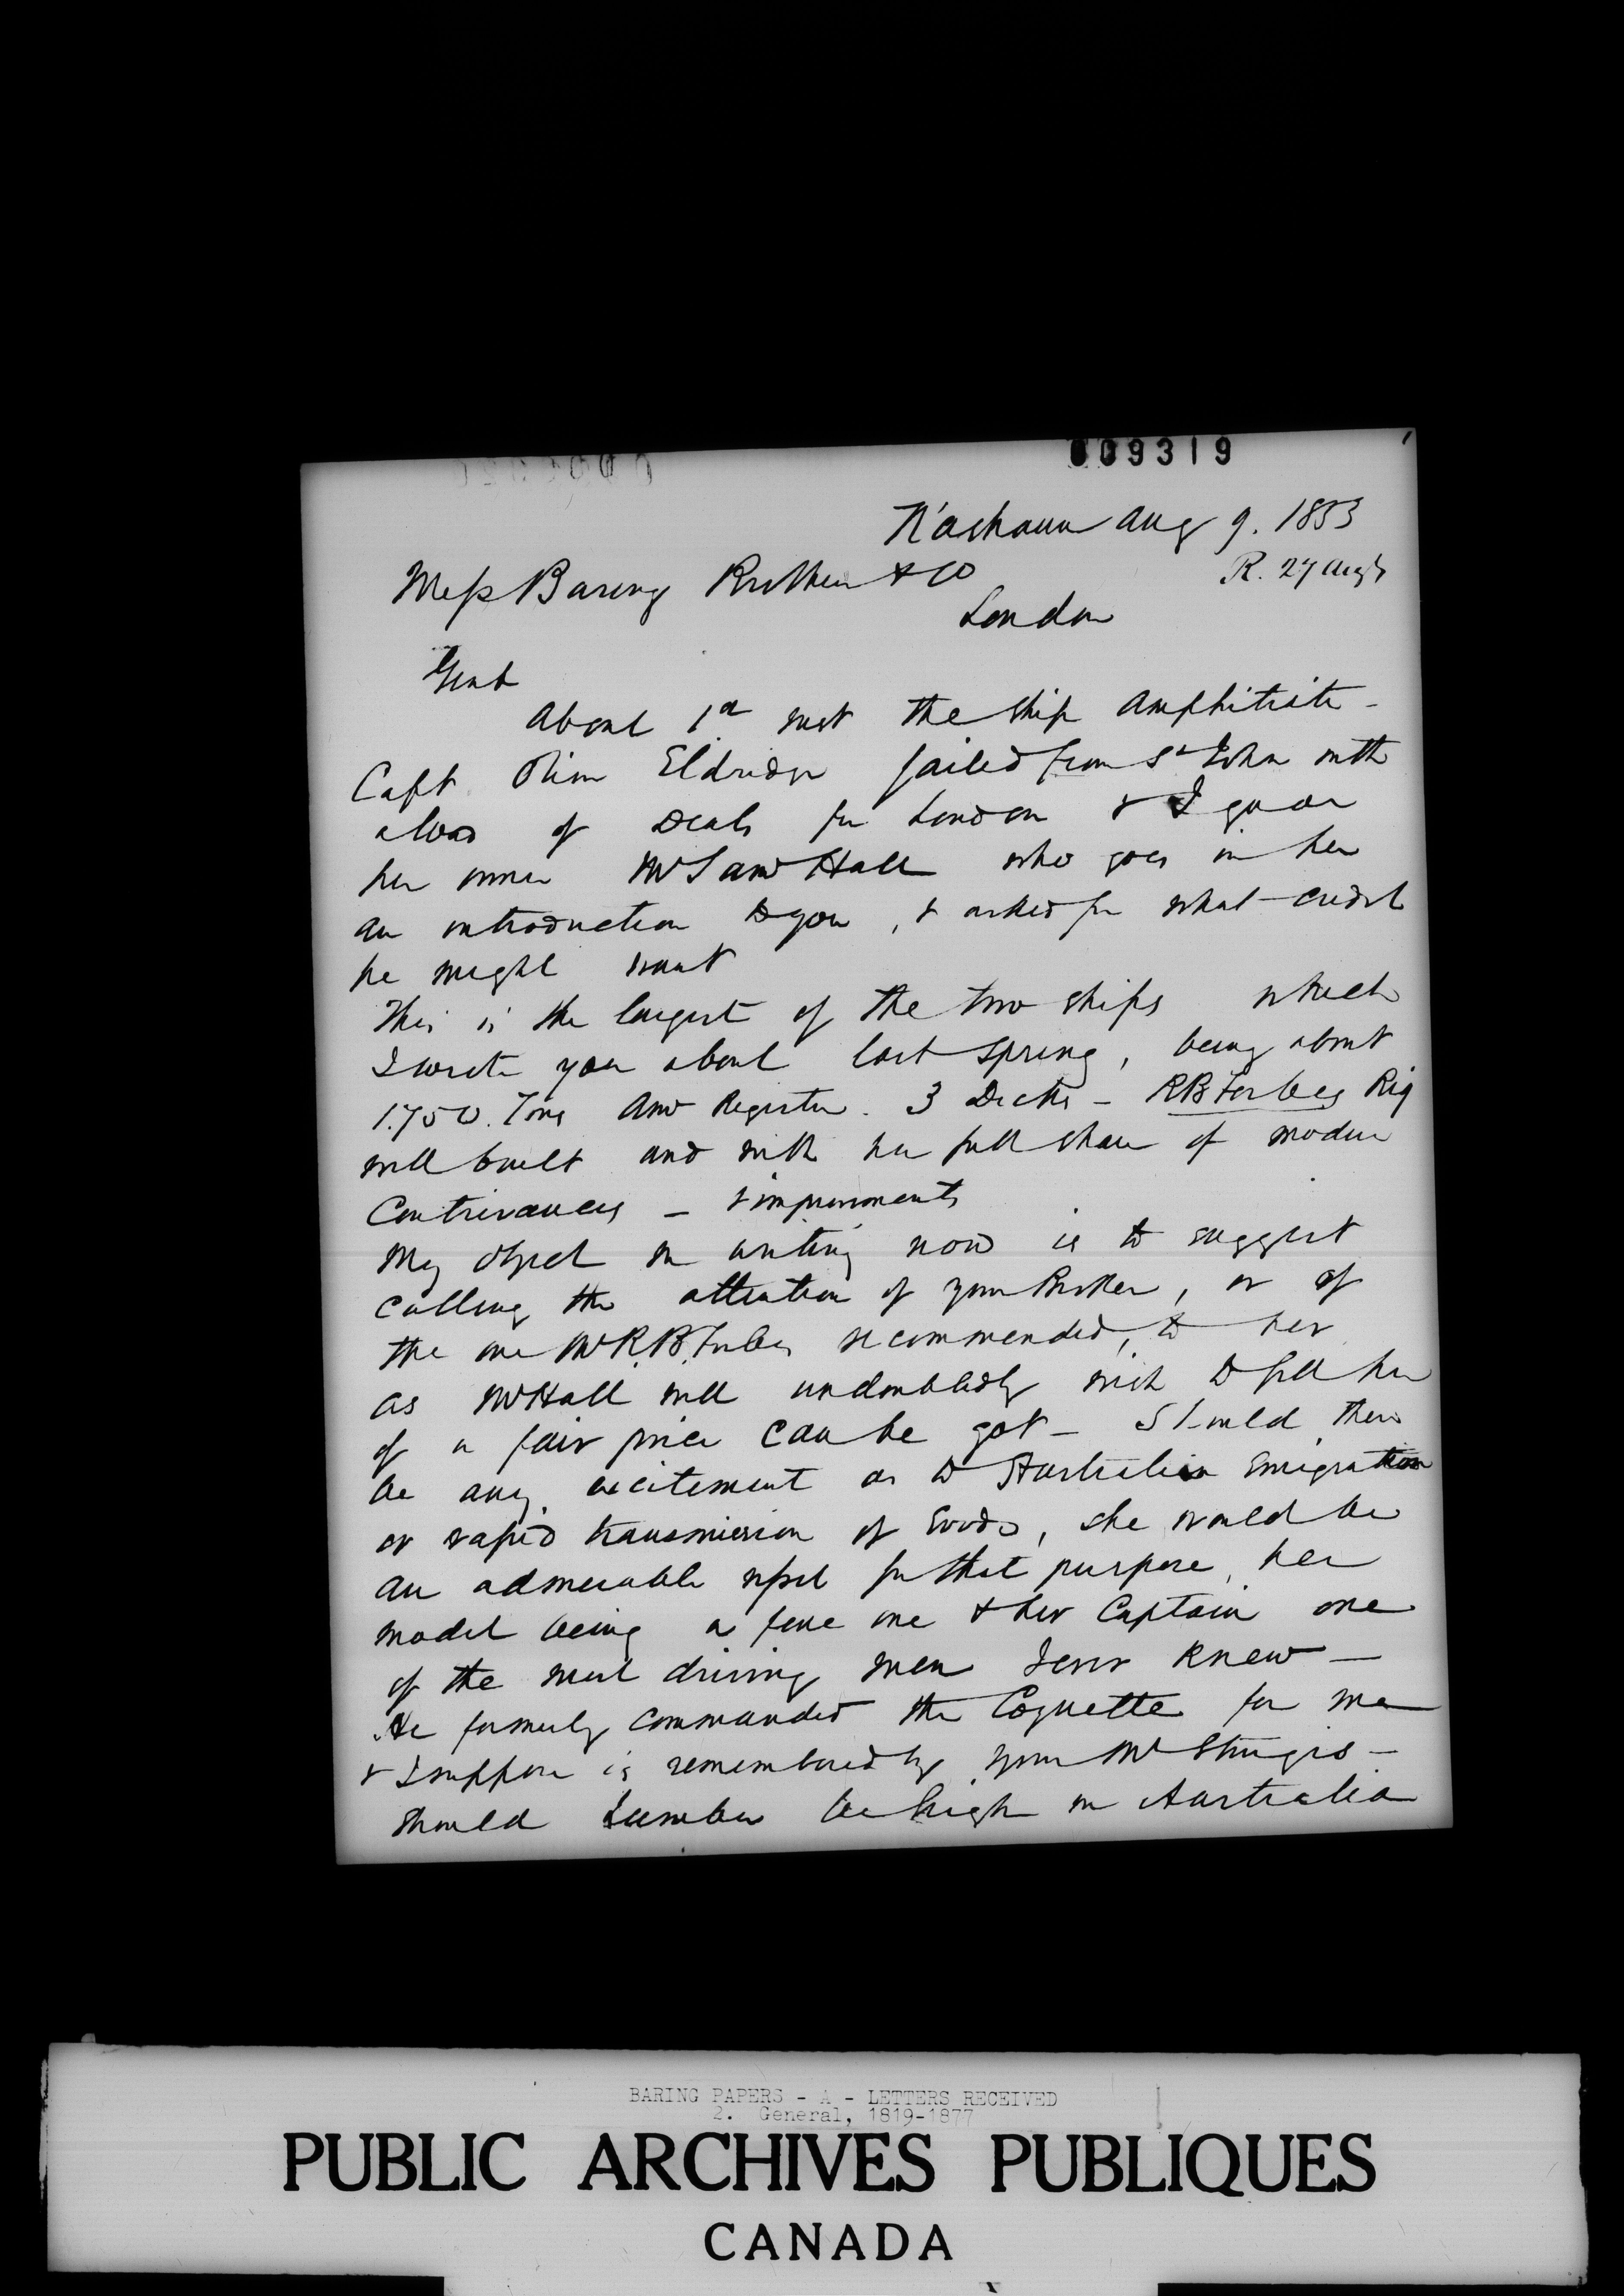 009319
N'ashaun Aug 9. 1853
R. 27 Augt
Mess Baring Brothers & Co
London
Gent
About 1st inst the ship Amphitrite -
Capt Oliver Eldridge sailed from St John with
a load of Deals for London & I gave
her owner Mr Saml Hall who goes in her
an introduction to you, & asked for what credit
he might want
This is the largest of the two ships which
I wrote you about last spring, being about
1.750. Tons Amn Register. 3 Decks - RB Forbes Rig
well built and with her full share of modern
Contrivances - & improvements
My object in writing now is to suggest
calling the attention of your Broker, or of
the one Mr R.B. Forbes recommended, to her
as Mr Hall will undoubtedly wish to sell her
if a fair price can be got - Should there
be any excitement as to Australian Emigration
or rapid transmission of Goods, she would be
an admirable vessel for that purpose, her
model being a fine one & her Captain one
of the most driving men I ever knew -
He formerly commanded the Coquette for me
& I suppose is remembered by your Mr Sturgis -
Should Lumber be high in Australia
BARING PAPERS - A - LETTERS RECEIVED
2. General, 1819-1877
PUBLIC ARCHIVES PUBLIQUES
CANADA